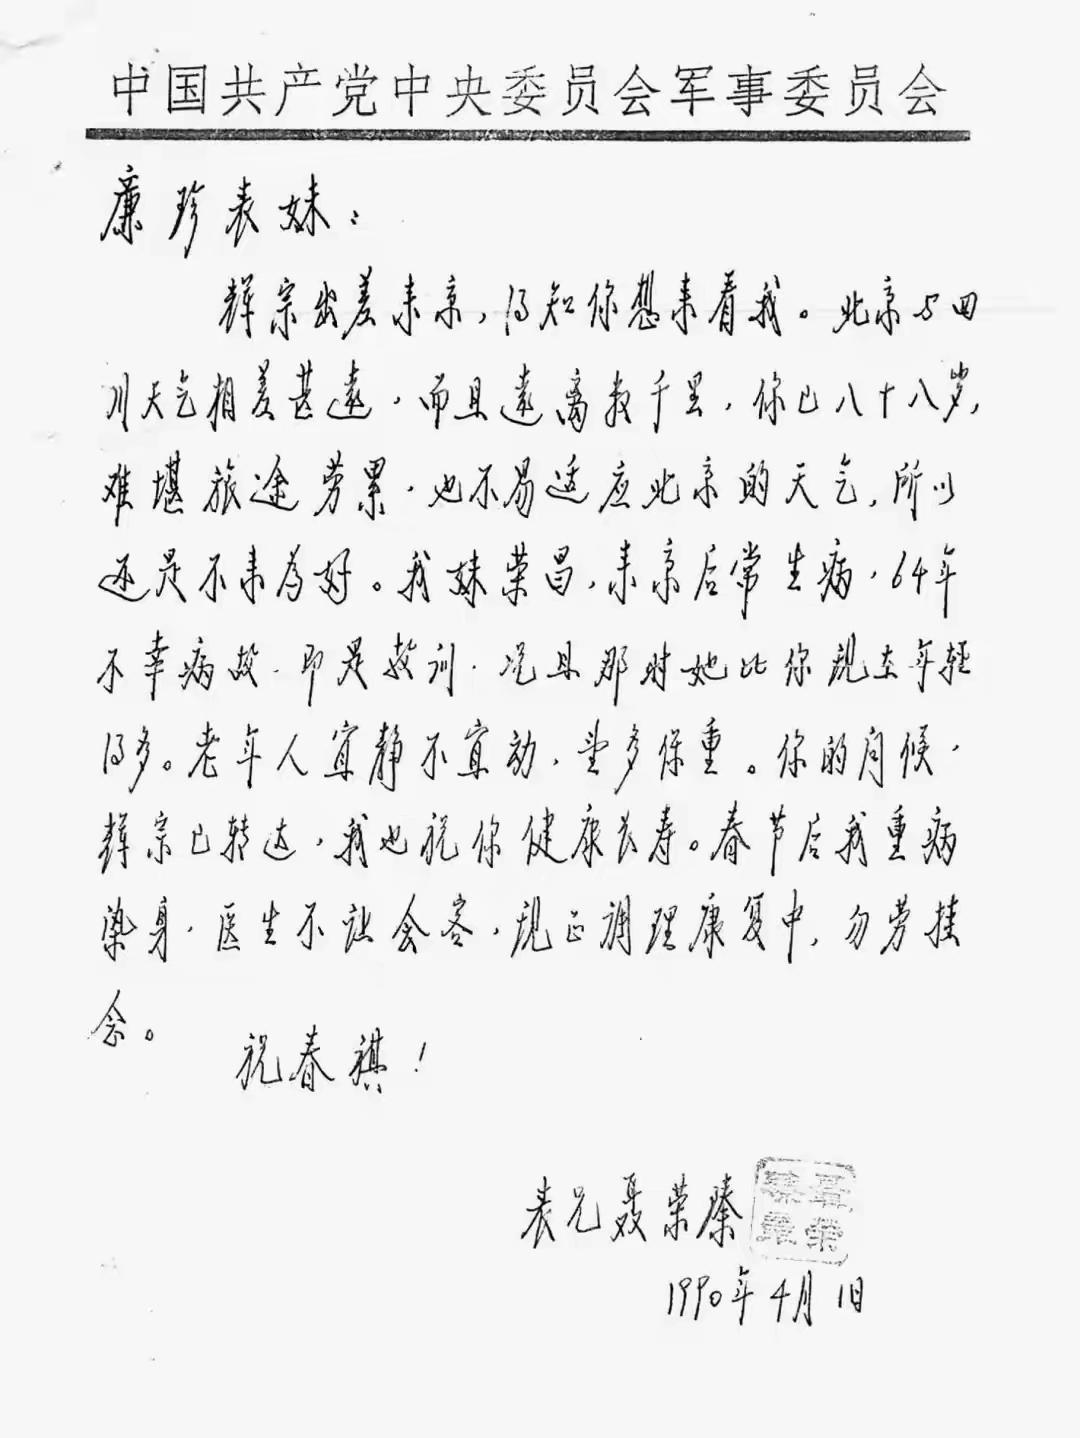 中国共产党中央委员会军事委员会
廉珍表妹：
辉宗出差来京，得知你想来看我。北京与四
川天气相差甚远，而且远离数千里，你已八十八岁，
难堪旅途劳累，也不易适应北京的天气，所以
还是不来为好。我妹荣昌，来京后常生病，64年
不幸病故，即是教训，况且那时她比你现在年轻
得多。老年人宜静不宜动，望多保重。你的问候，
辉宗已转达，我也祝你健康长寿。春节后我重病
染身，医生不让会客，现正调理康复中，勿劳挂
念。
祝春祺！
表兄聂荣臻
1990年4月1日